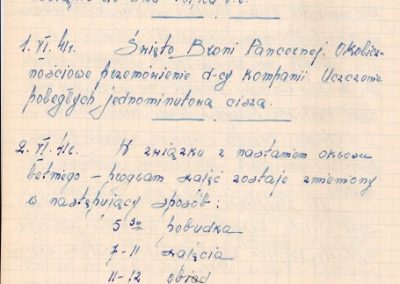 1. VI. 41r. Święto Broni Pancernej. Okolicz-
nościowe przemówienie d-cy kompanii. Uczczenie
poległych jednominutową ciszą.
2. VI. 41r. W związku z nastaniem okresu
letniego – program zajęć zostaje zmieniony
w następujący sposób:
5 30 pobudka
7-11 zajęcia
11-12 obiad